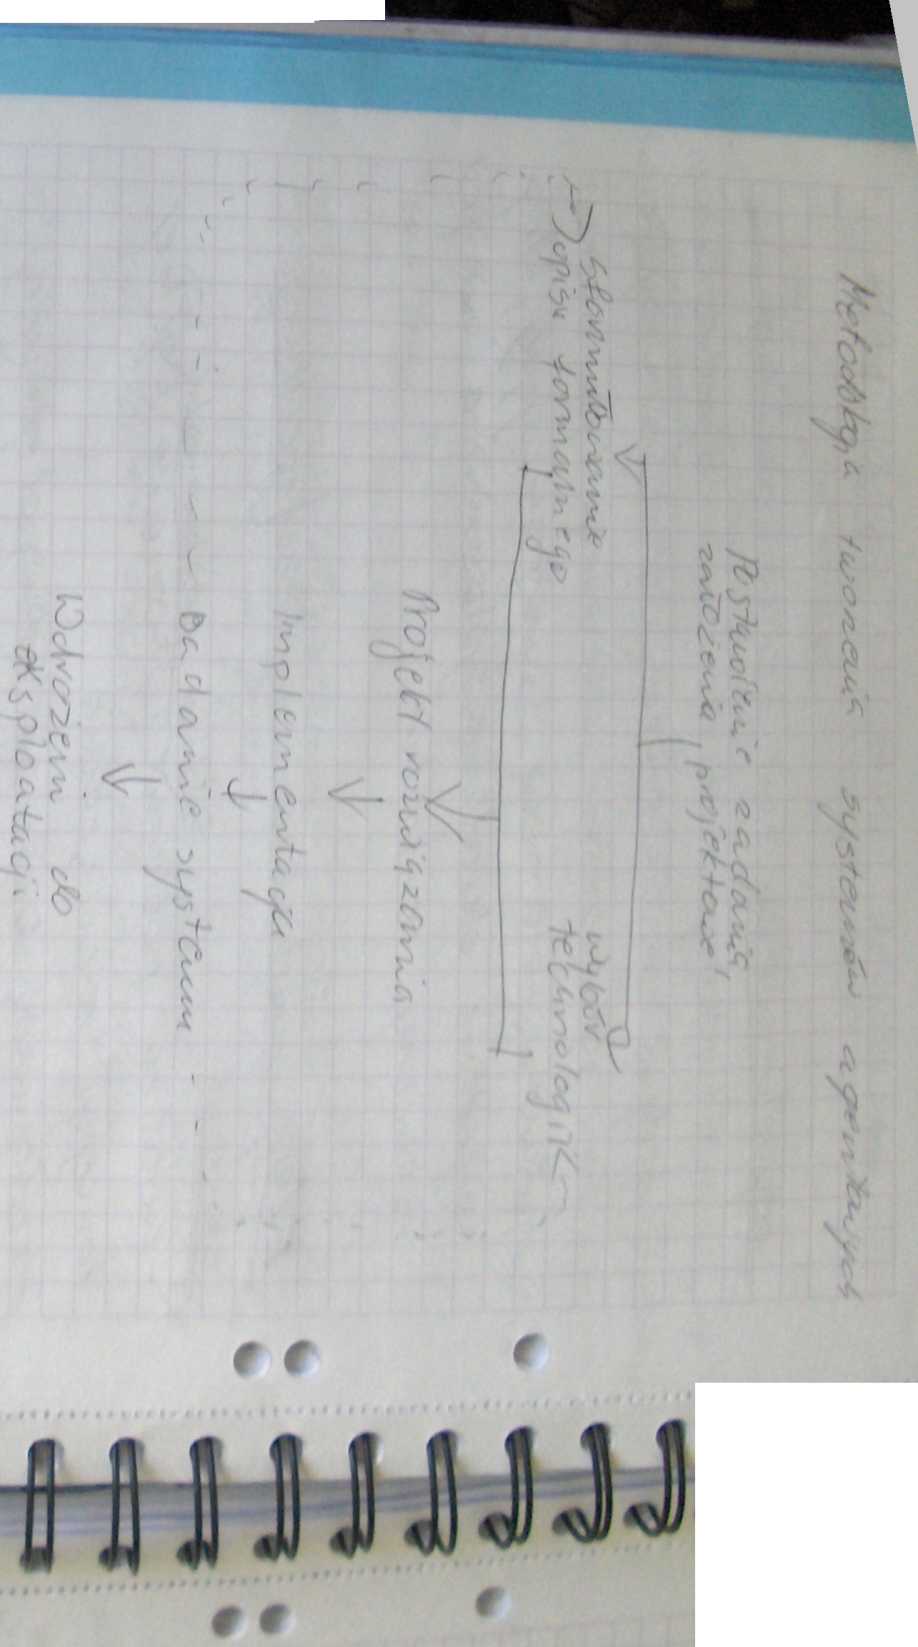 Metodologia tworzenia systemów agentowych
Postawienie zadania,
założenia projektowe
sformułowanie
opisu formalnego
wybór
technologii
Projekt rozwiązania
Implementacja
Badanie systemu
Wdrożeni do
eksploatacji